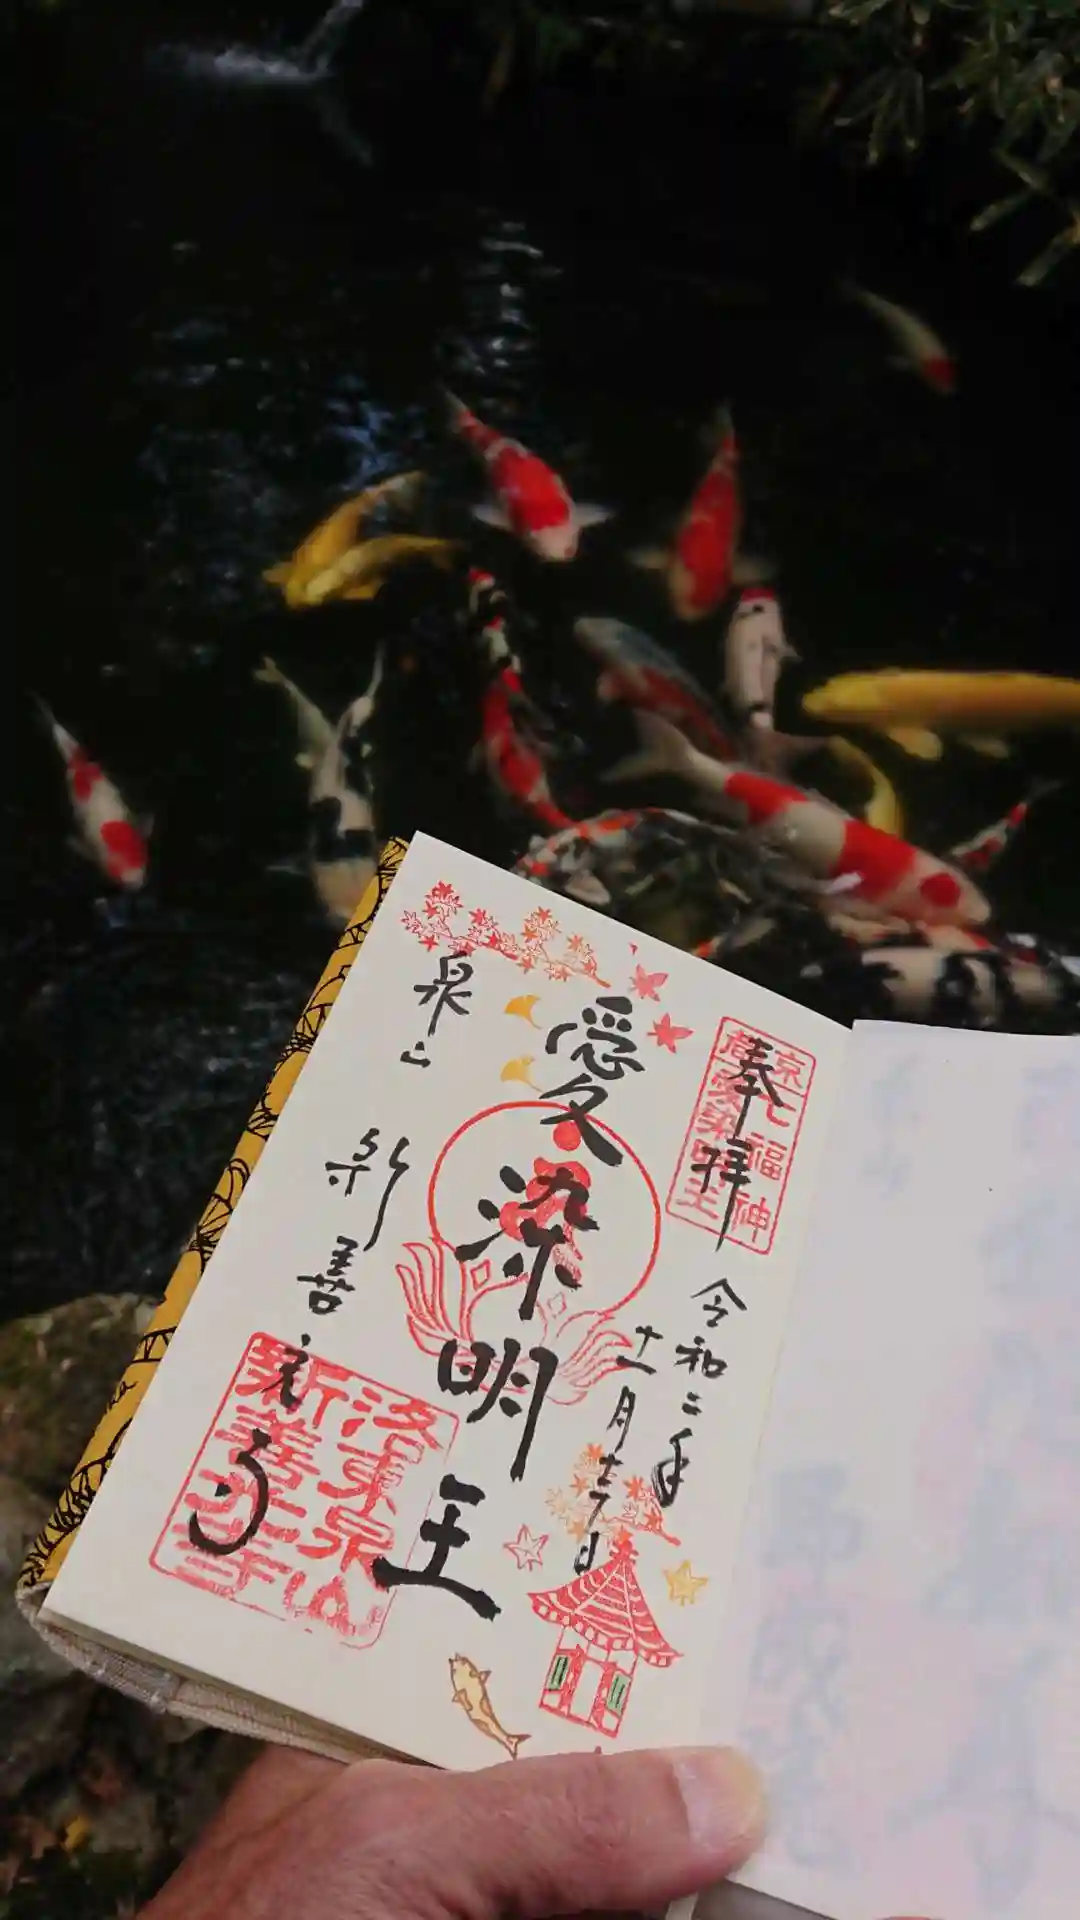 奉拝
京七福神
愛染明王
令和二年
十一月十六日
愛染明王
泉山
新善光寺
洛東泉山
新善光寺